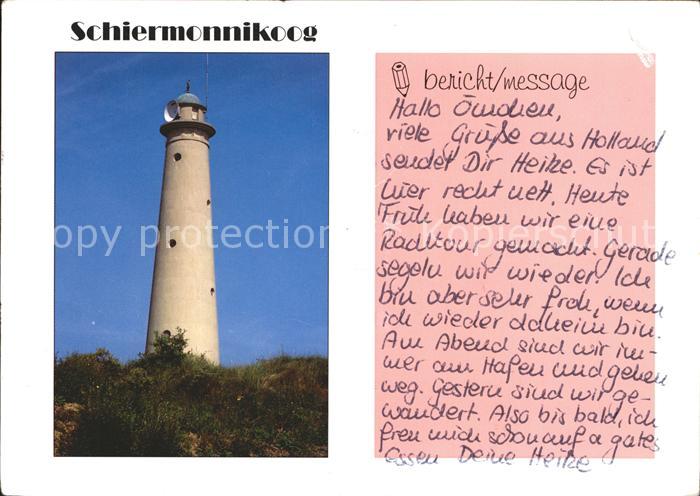 Schiermonnikoog
bericht/message
Hallo Omchen,
viele Grüße aus Holland
sendet Dir Heike. Es ist
hier recht nett. Heute
Früh haben wir eine
Radltour gemacht. Gerade
segeln wir wieder. Ich
bin aber sehr froh, wenn
ich wieder daheim bin.
Am Abend sind wir im-
mer am Hafen und gehen
weg. Gestern sind wir ge-
wandert. Also bis bald, ich
freu mich schon auf a gutes
Essen Deine Heike
copy protection
© Kopierschutz